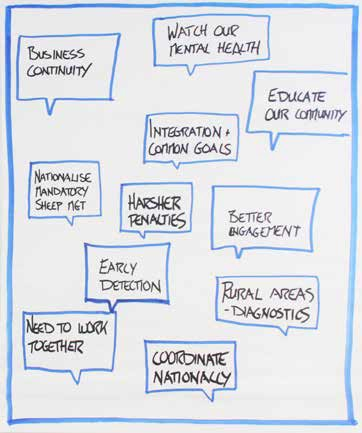 WATCH OUR
MENTAL HEALTH
BUSINESS
CONTINUITY
EDUCATE
OUR COMMUNITY
INTEGRATION +
COMMON GOALS
NATIONALISE
MANDATORY
SHEEP MGT
HARSHER
PENALTIES
BETTER
ENGAGEMENT
EARLY
DETECTION
RURAL AREAS
- DIAGNOSTICS
NEED TO WORK
TOGETHER
COORDINATE
NATIONALLY